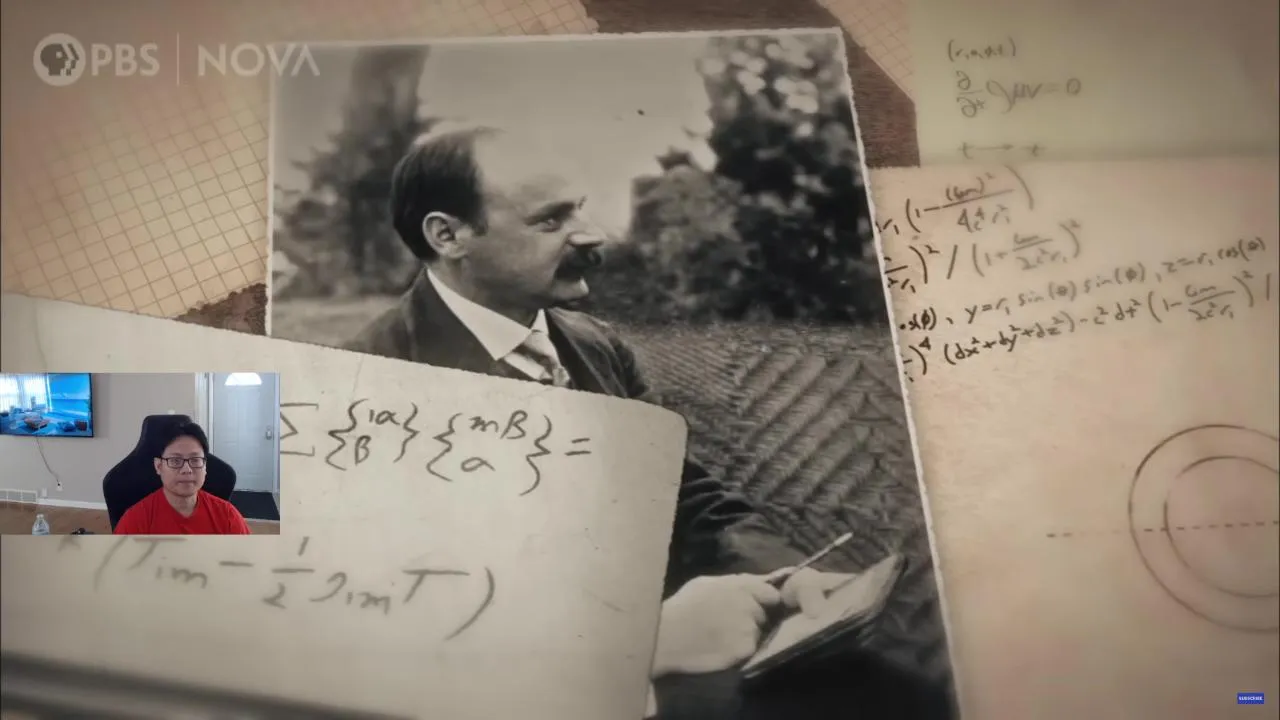 PBS | NOVA
(r,θ,φ,t)
∂/∂t gμν = 0
t → -t
r₁ (1 - (Gm)²/4c⁴r₁²)
)² / (1 + Gm/2c²r₁)²
s(ϕ), y=r₁ sin(θ) sin(ϕ), z=r₁ cos(θ)
)⁴ (dx²+dy²+dz²) - c² dt² (1 - Gm/2c²r₁)² /
Σ {1α β} {mβ α} =
(Tim - 1/2 gim T)
SUBSCRIBE